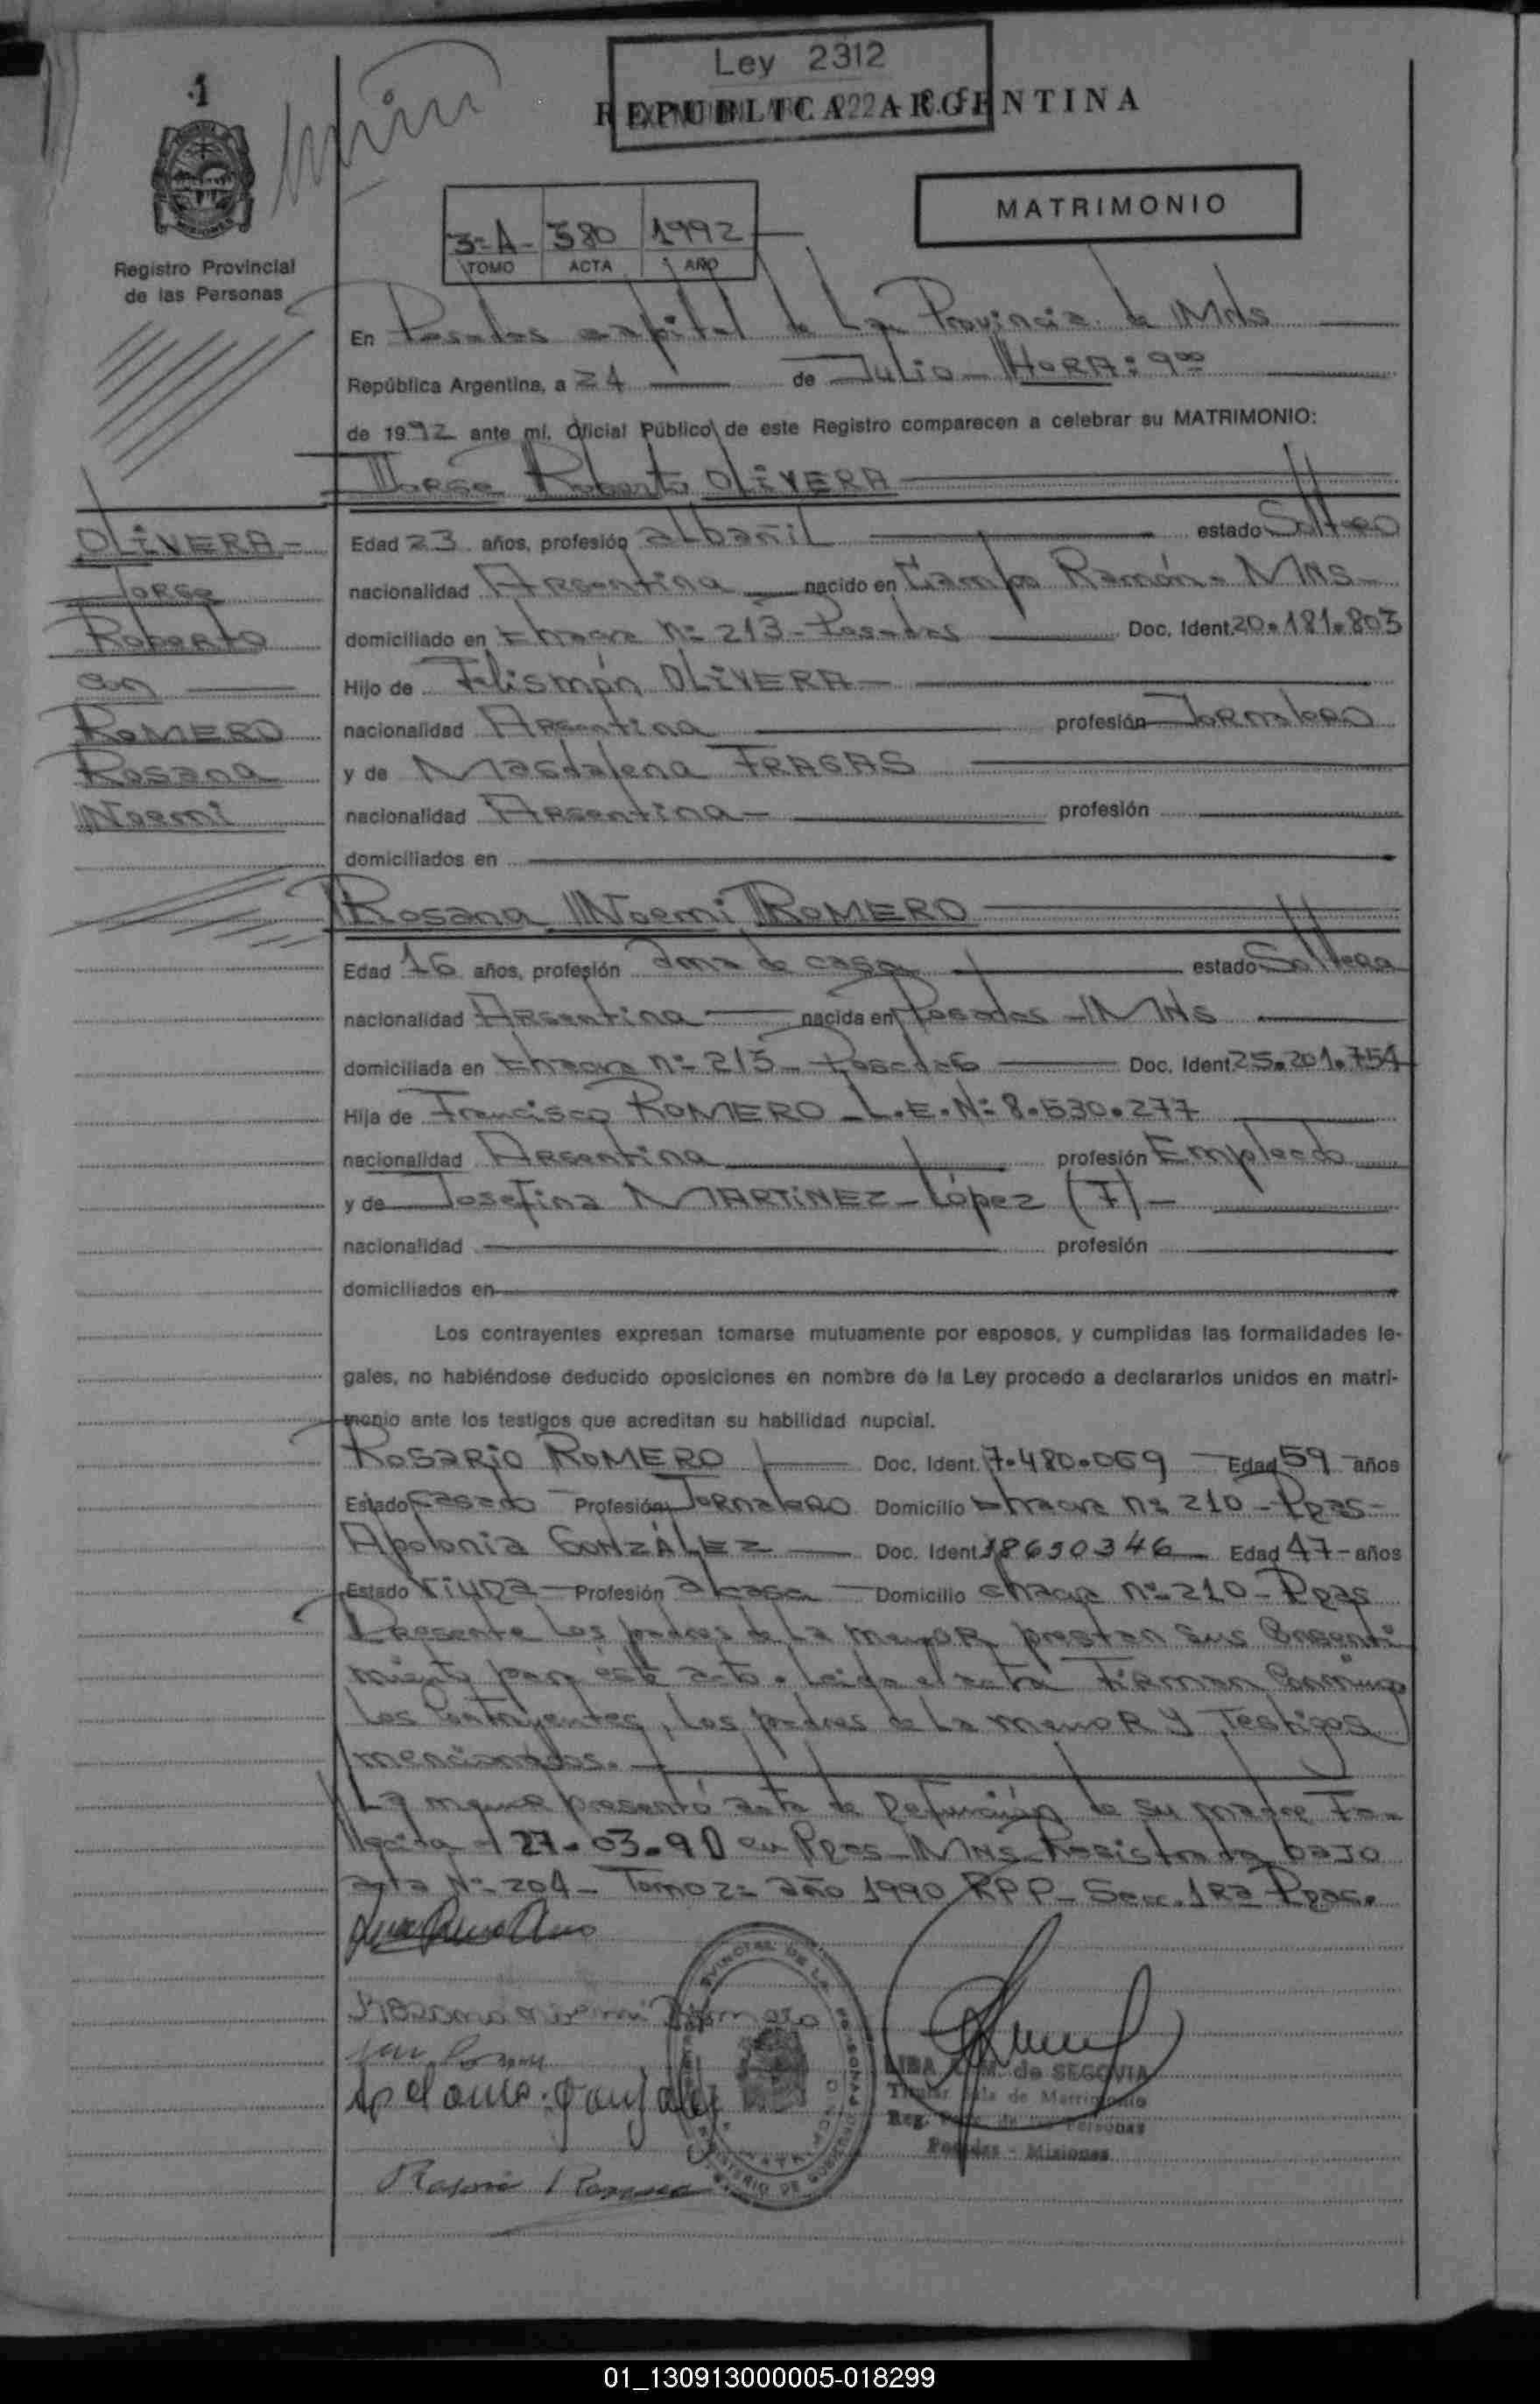 1
Ley 2312
REPUBLICA ARGENTINA
MATRIMONIO
Registro Provincial
de las Personas
3= A- 380 1992
TOMO ACTA AÑO
En Posadas capital de La Provincia de Mnes
República Argentina, a 24 de Julio - HORA: 9 00
de 1992 ante mí, Oficial Público de este Registro comparecen a celebrar su MATRIMONIO:
Jorge Roberto OLIVERA
OLIVERA -
Jorge
Roberto
con
ROMERO
Rosana
Noemi
Edad 23 años, profesión albañil estado Soltero
nacionalidad Argentina nacido en Campo Ramón - Mns
domiciliado en Chacra Nº 213 - Posadas Doc. Ident. 20.181.803
Hijo de Felismón OLIVERA
nacionalidad Argentina profesión Jornalero
y de Magdalena FRAGAS
nacionalidad Argentina profesión
domiciliados en
Rosana Noemi ROMERO
Edad 16 años, profesión ama de casa estado Soltera
nacionalidad Argentina nacida en Posadas - Mns
domiciliada en Chacra Nº 213 - Posadas Doc. Ident. 25.201.754
Hija de Francisco ROMERO - L.E. Nº 8.530.277
nacionalidad Argentina profesión Empleado
y de Josefina MARTINEZ - López (F) -
nacionalidad profesión
domiciliados en
Los contrayentes expresan tomarse mutuamente por esposos, y cumplidas las formalidades le-
gales, no habiéndose deducido oposiciones en nombre de la Ley procedo a declararlos unidos en matri-
monio ante los testigos que acreditan su habilidad nupcial.
Rosario ROMERO Doc. Ident. 7.480.069 Edad 59 años
Estado casado Profesión Jornalero Domicilio chacra nº 210 - Pdas -
Apolonia GONZÁLEZ Doc. Ident. 18650346 Edad 47 - años
Estado viuda Profesión a/casa Domicilio chacra nº 210 - Pdas
Presente los padres de la menor prestan sus consenti
miento para este acto. Leída el acta Firman conmigo
los contrayentes, los padres de la menor y Testigos
mencionados.
La menor presentó acta de Defunción de su madre Fa-
llecida el 27-03-90 en Pdas - Mns Registrada bajo
acta Nº 204 - Tomo 2= año 1990 RPP - Secc. 1Ra Pdas.
Rosana Noemi Romero
Apolonia Gonzalez
Rosario Romero
de SEGOVIA
Titular Sala de Matrimonio
Reg. Prov. de las Personas
Posadas - Misiones
01_130913000005-018299